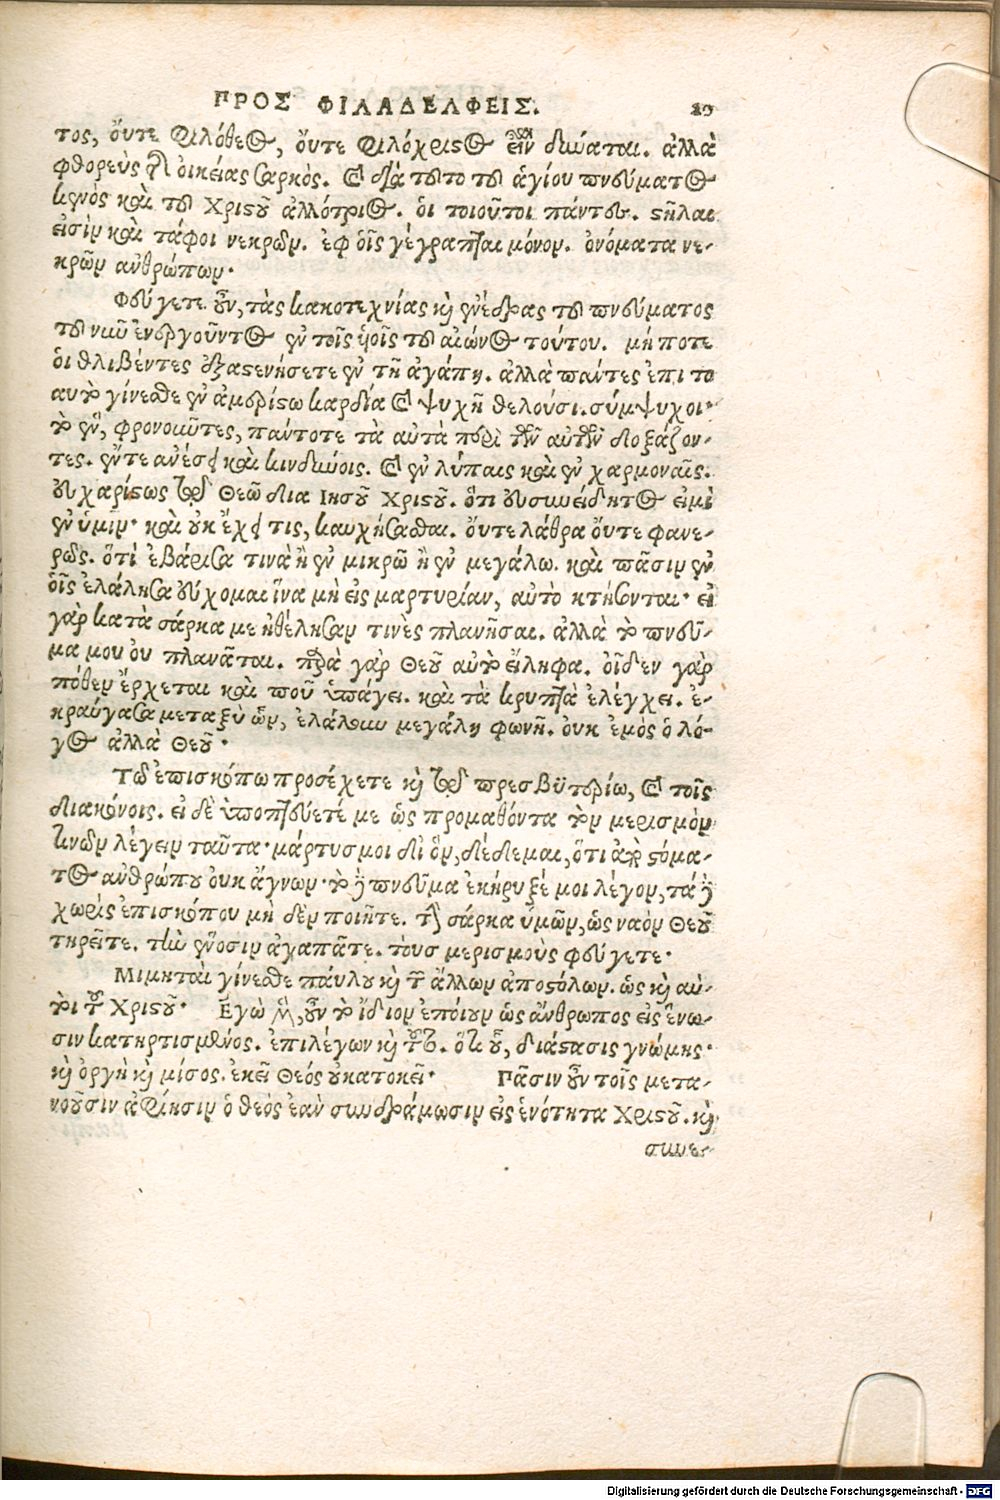 ΠΡΟΣ ΦΙΛΑΔΕΛΦΕΙΣ. 29
τος, ὄυτε φιλόθεος, ὄυτε φιλόχριστος εἶναι δύναται. ἀλλὰ
φθορεὺς τῆς ὀικείας σαρκὸς. καὶ διὰ τοῦτο τοῦ ἁγίου πνεύματος
κενὸς καὶ τοῦ Χριστοῦ ἀλλότριος. ὁι τοιοῦτοι πάντες. στῆλαι
εἰσὶν καὶ τάφοι νεκρῶν. ἐφ ὁῖς γέγραπται μόνον. ὀνόματα νε-
κρῶν ἀνθρώπων.
Φεύγετε οὖν, τὰς κακοτεχνίας καὶ ἐνέδρας τοῦ πνεύματος
τοῦ νῦν ἐνεργοῦντος ἐν τοῖς ὑιοῖς τοῦ αἰῶνος τούτου. μήποτε
ὁι θλιβέντες ἐξαστενήσετε ἐν τῆ ἀγάπη. ἀλλὰ πάντες ἐπι το
αυτὸ γίνεσθε ἐν ἀμερίστω καρδία καὶ ψυχῆ θελούσι. σύμψυχοι
τὸ ἓν, φρονοῦντες, πάντοτε τὰ αὐτὰ περὶ τῶν αὐτῶν δοξάζον-
τες. ἔν τε ἀνέσει καὶ κινδύνοις. καὶ ἐν λύπαις καὶ ἐν χαρμοναῖς.
ευχαρίστως τῷ Θεῶ δια Ιησοῦ Χριστοῦ. ὅτι ευσυνείδητος εἰμὶ
ἐν ὑμῖν. καὶ οὐκ ἔχει τις, καυχήσασθαι. ὄυτε λάθρα ὄυτε φανε-
ρῶς. ὅτι ἐβάρισα τινὰ ἢ ἐν μικρῶ ἢ ἐν μεγάλω. καὶ πᾶσιν ἐν
ὁῖς ἐλάλησα εύχομαι ἵνα μὴ εἰς μαρτυρίαν, αὐτὸ κτήσονται. εἰ
γὰρ κατὰ σάρκα με ἠθέλησαν τινὲς πλανῆσαι. ἀλλὰ τὸ πνεῦ-
μα μου ὀυ πλανᾶται. παρὰ γὰρ Θεοῦ αὐτὸ ἔιληφα. οἶδεν γὰρ
πόθεν ἔρχεται καὶ ποῦ ὑπάγει. καὶ τὰ κρυπτὰ ἐλέγχει. ἐ-
κραύγασα μεταξὺ ὢν, ἐλάλουν μεγάλη φωνῆ. ὀυκ ἐμὸς ὁ λό-
γος ἀλλὰ Θεοῦ.
Τῶ ἐπισκόπω προσέχετε καὶ τῷ πρεσβϋτερίω, καὶ τοῖς
διακόνοις. εἰ δὲ ὑποπτεύετέ με ὡς προμαθόντα τὸν μερισμὸν
τινῶν λέγειν ταῦτα. μάρτυς μοι δἰ ὃν, δέδεμαι, ὅτι ἀπὸ στόμα-
τος ἀνθρώπου ὀυκ ἄγνων. τὸ δὲ πνεῦμα ἐκήρυξέ μοι λέγον, τάδε
χωρὶς ἐπισκόπου μὴ δὲν ποιῆτε. τὴν σάρκα ὑμῶν, ὡς ναὸν Θεοῦ
τηρεῖτε. τὴν ἕνοσιν ἀγαπᾶτε. τοὺσ μερισμοὺς φεύγετε.
Μιμηταὶ γίνεσθε παύλου καὶ τῶν ἄλλων ἀποστόλων. ὡς καὶ αὐ-
τὸι τοῦ Χριστοῦ. Εγὼ μὲν, οὖν τὸ ἴδιον ἐπόιουν ὡς ἄνθρωπος εἰς ἕνω-
σιν κατηρτισμένος. ἐπιλέγων καὶ τοῦτο. ὅτι οὗ, διάστασις γνώμης.
καὶ ὀργὴ καὶ μίσος. ἐκεῖ Θεός οὐ κατοκεῖ. Πᾶσιν οὖν τοῖς μετα-
νοῦσιν ἀφίησιν ὁ θεὸς ἐὰν συνδράμωσιν εἰς ἑνότητα Χριστοῦ. καὶ
συνε-